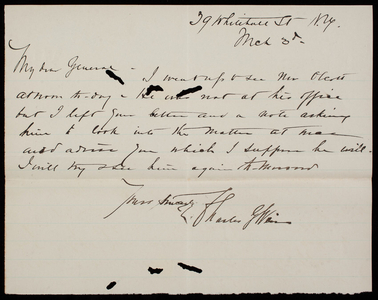 39 Whitehall St N.Y.
Mch 3d
My dear General - I went up to see Mr Olcott
at noon to day - He was not at his office
but I left your letter and a note asking
him to look into the matter at once
and advise you which I suppose he will -
I will try & see him again to morrow
Yours Sincerely
Charles G